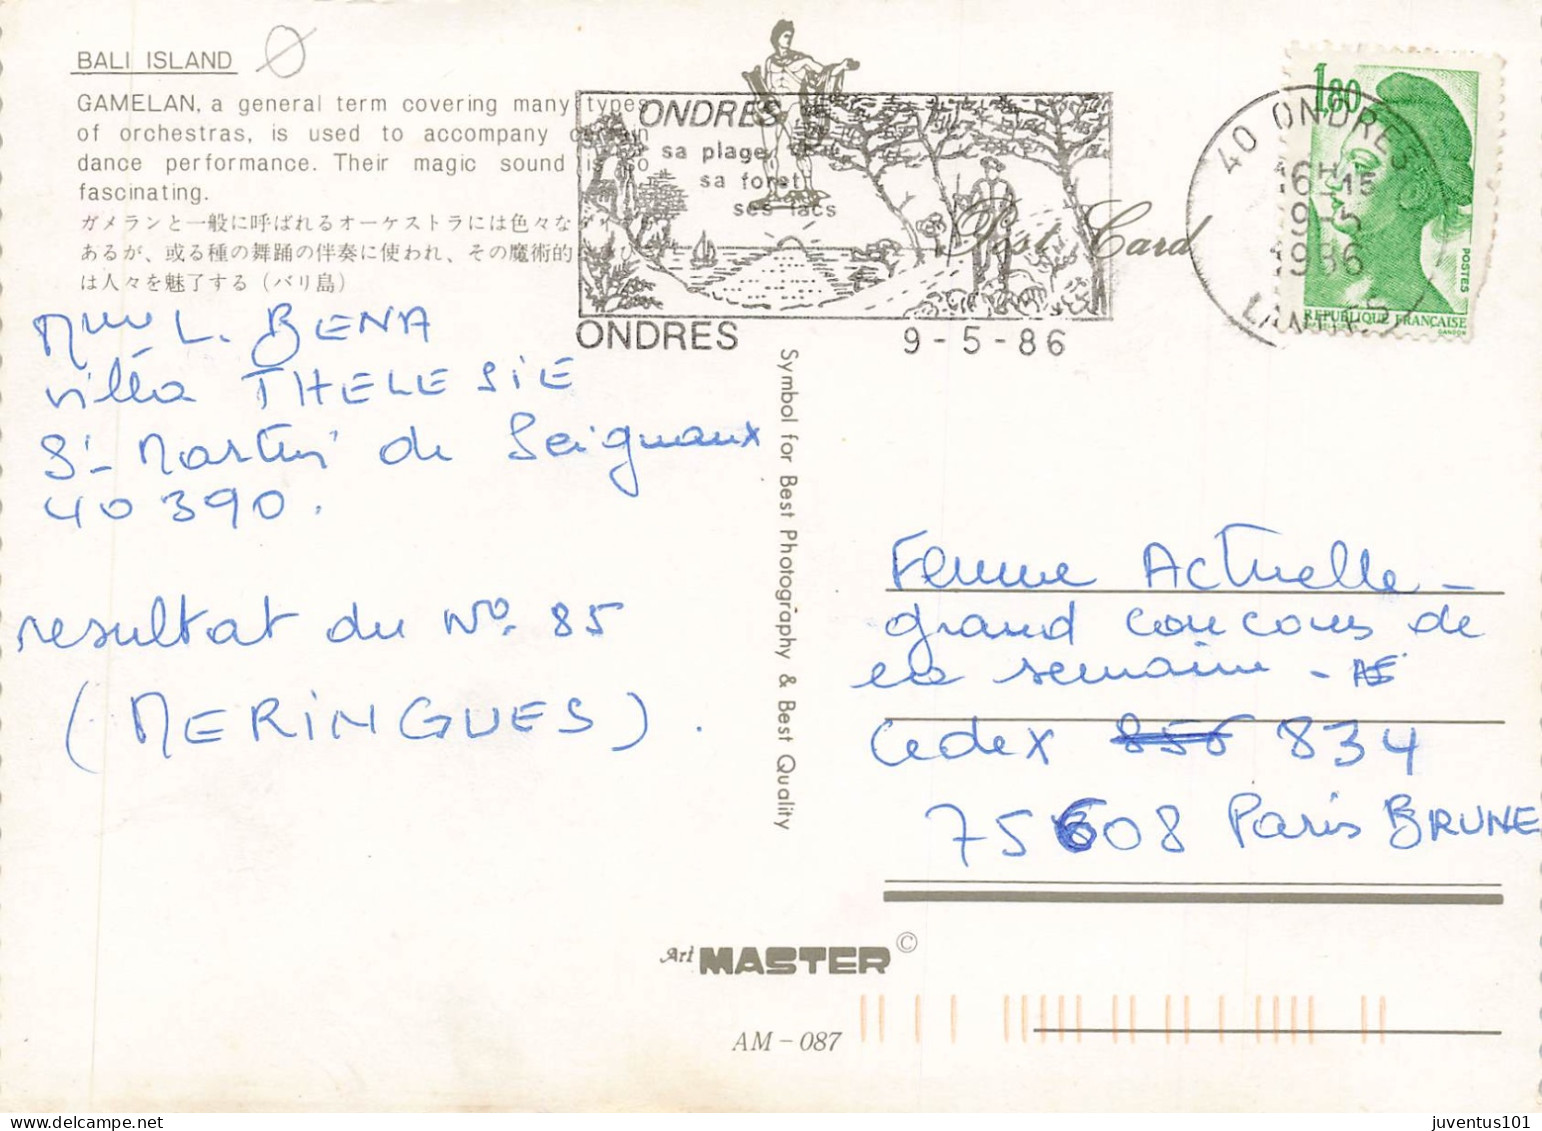 BALI ISLAND
GAMELAN, a general term covering many types
of orchestras, is used to accompany certain
dance performance. Their magic sound is so
fascinating.
ガメランと一般に呼ばれるオーケストラには色々な
あるが、或る種の舞踊の伴奏に使われ、その魔術的
は人々を魅了する（バリ島）
Mme L. BENA
villa THELESIE
St-Martin de Seignaux
40390.
resultat du No. 85
(MERINGUES).
ONDRES
sa plage
sa foret
ses lacs
ONDRES
9-5-86
Post Card
40 ONDRES
16H15
9-5
1986
LANDES
1,80
POSTES
REPUBLIQUE FRANÇAISE
GANDON
Symbol for Best Photography & Best Quality
Femme Actuelle -
grand concours de
la semaine -
Cedex 834
75608 Paris BRUNE
Art MASTER ©
AM-087
juventus101